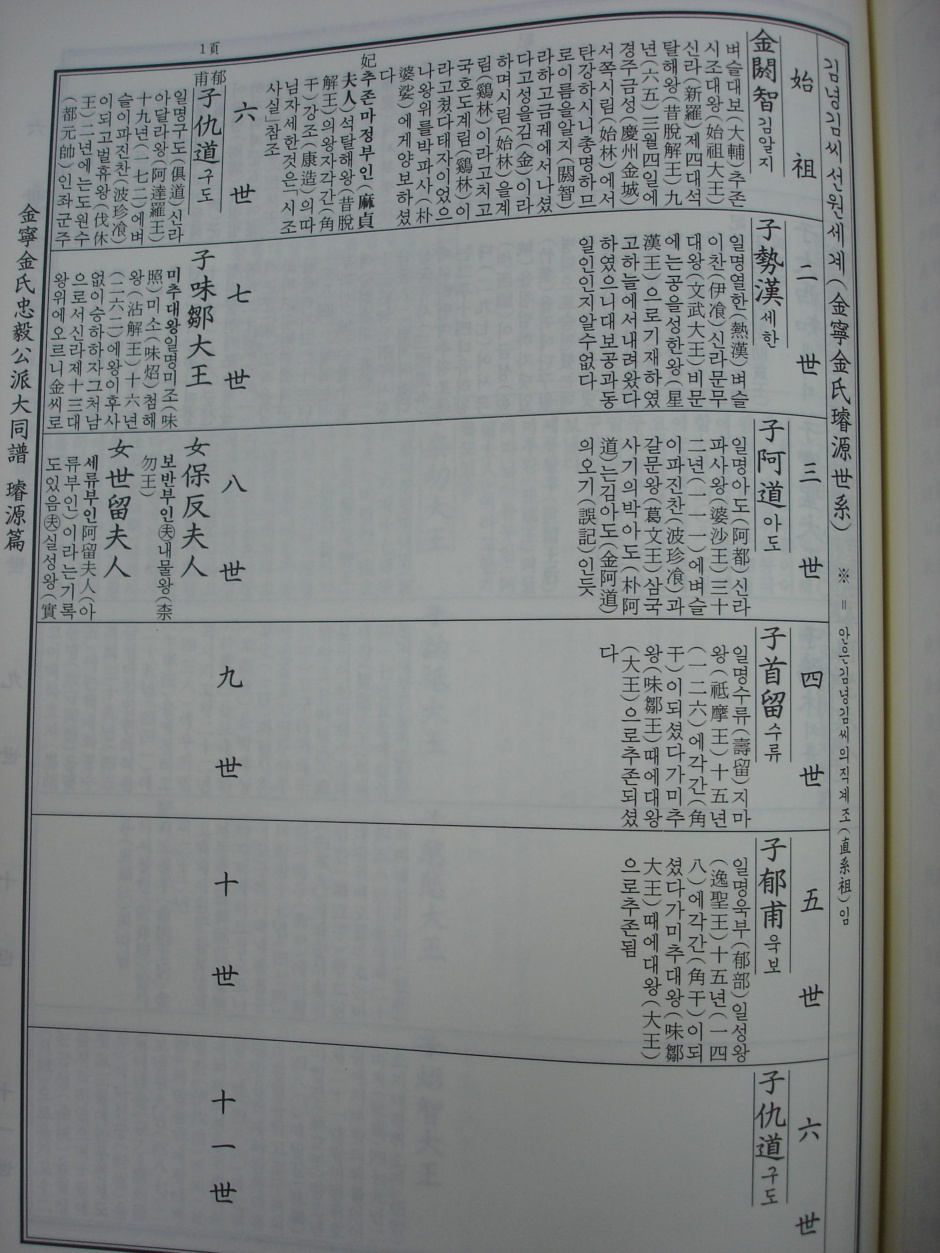 김녕김씨 선원세계(金寧金氏璿源世系) ※ = 안은 김녕김씨의 직계조(直系祖)임
始祖
金閼智 김알지
벼슬대보(大輔)추존
시조대왕(始祖大王)
신라(新羅)제四대석
탈해왕(昔脫解王)九
년(六五)三월四일에
경주금성(慶州金城)
서쪽시림(始林)에서
탄강하시니총명하므
로이름을알지(閼智)
라하고금궤에서나셨
다고성을김(金)이라
하며시림(始林)을계
림(鷄林)이라고치고
국호도계림(鷄林)이
라고쳤다태자이었으
나왕위를박파사(朴
婆娑)에게양보하셨
다
妃추존마정부인(麻貞
夫人)석탈해왕(昔脫
解王)의왕자각간(角
干)강조(康造)의따
님자세한것은「시조
사실」참조
二世
子勢漢 세한
일명열한(熱漢)벼슬
이찬(伊飡)신라문무
대왕(文武大王)비문
에는공을성한왕(星
漢王)으로기재하였
고하늘에서내려왔다
하였으니대보공과동
일인인지알수없다
三世
子阿道 아도
일명아도(阿都)신라
파사왕(婆沙王)三十
二년(一一一)에벼슬
이파진찬(波珍飡)과
갈문왕(葛文王)삼국
사기의박아도(朴阿
道)는김아도(金阿道)
의오기(誤記)인듯
四世
子首留 수류
일명수류(壽留)지마
왕(祗摩王)十五년
(一二六)에각간(角
干)이되셨다가미추
왕(味鄒王)때에대왕
(大王)으로추존되셨
다
五世
子郁甫 욱보
일명욱부(郁部)일성왕
(逸聖王)十五년(一四
八)에각간(角干)이되
셨다가미추대왕(味鄒
大王)때에대왕(大王)
으로추존됨
六世
子仇道 구도
1頁
六世
郁甫
子仇道 구도
일명구도(俱道)신라
아달라왕(阿達羅王)
十九年(一七二)에벼
슬이파진찬(波珍飡)
이되고벌휴왕(伐休
王)二년에는도원수
(都元帥)인좌군주
七世
子味鄒大王
미추대왕일명미조(味
照)미소(味炤)첨해
왕(沾解王)十六年
(二六二)에왕이후사
없이승하하자그처남
으로서신라제十三대
왕위에오르니金씨로
八世
女保反夫人
보반부인㊛내물왕(柰
勿王)
女世留夫人
세류부인阿留夫人(아
류부인)이라는기록
도있음㊛실성왕(實
九世
十世
十一世
金寧金氏忠毅公派大同譜 璿源篇